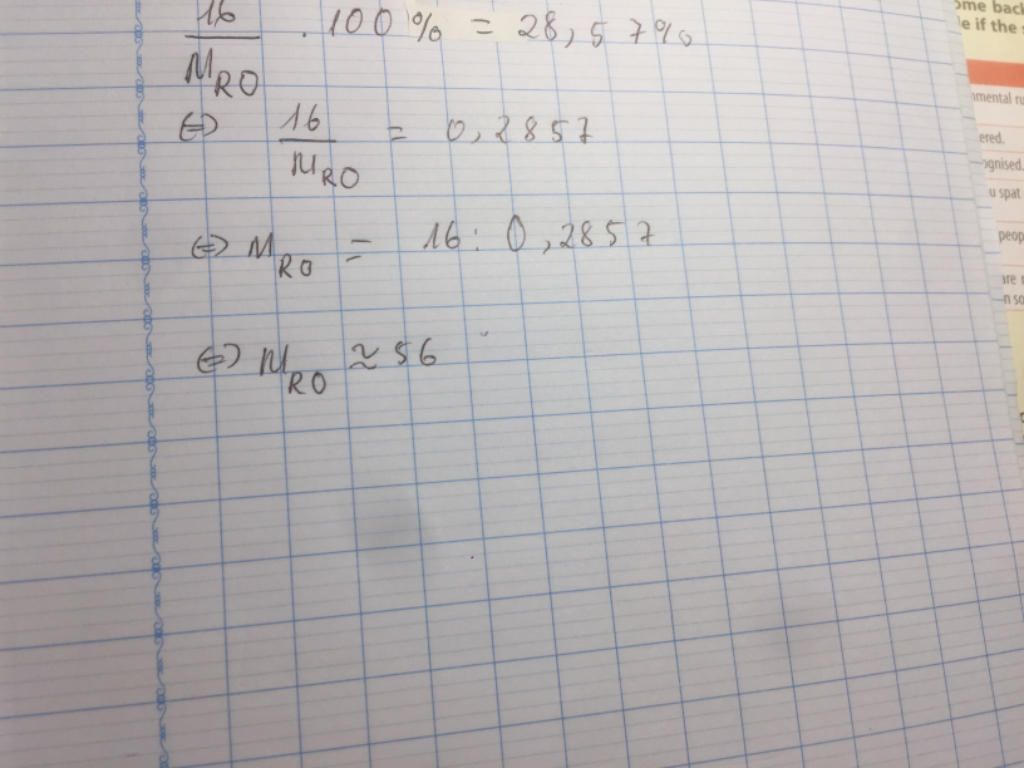 16/M_RO . 100% = 28,57%
⇔ 16/M_RO = 0,2857
⇔ M_RO = 16 : 0,2857
⇔ M_RO ≈ 56
ome back
e if the
mental ru
ered.
ognised.
u spat
peop
are
n so